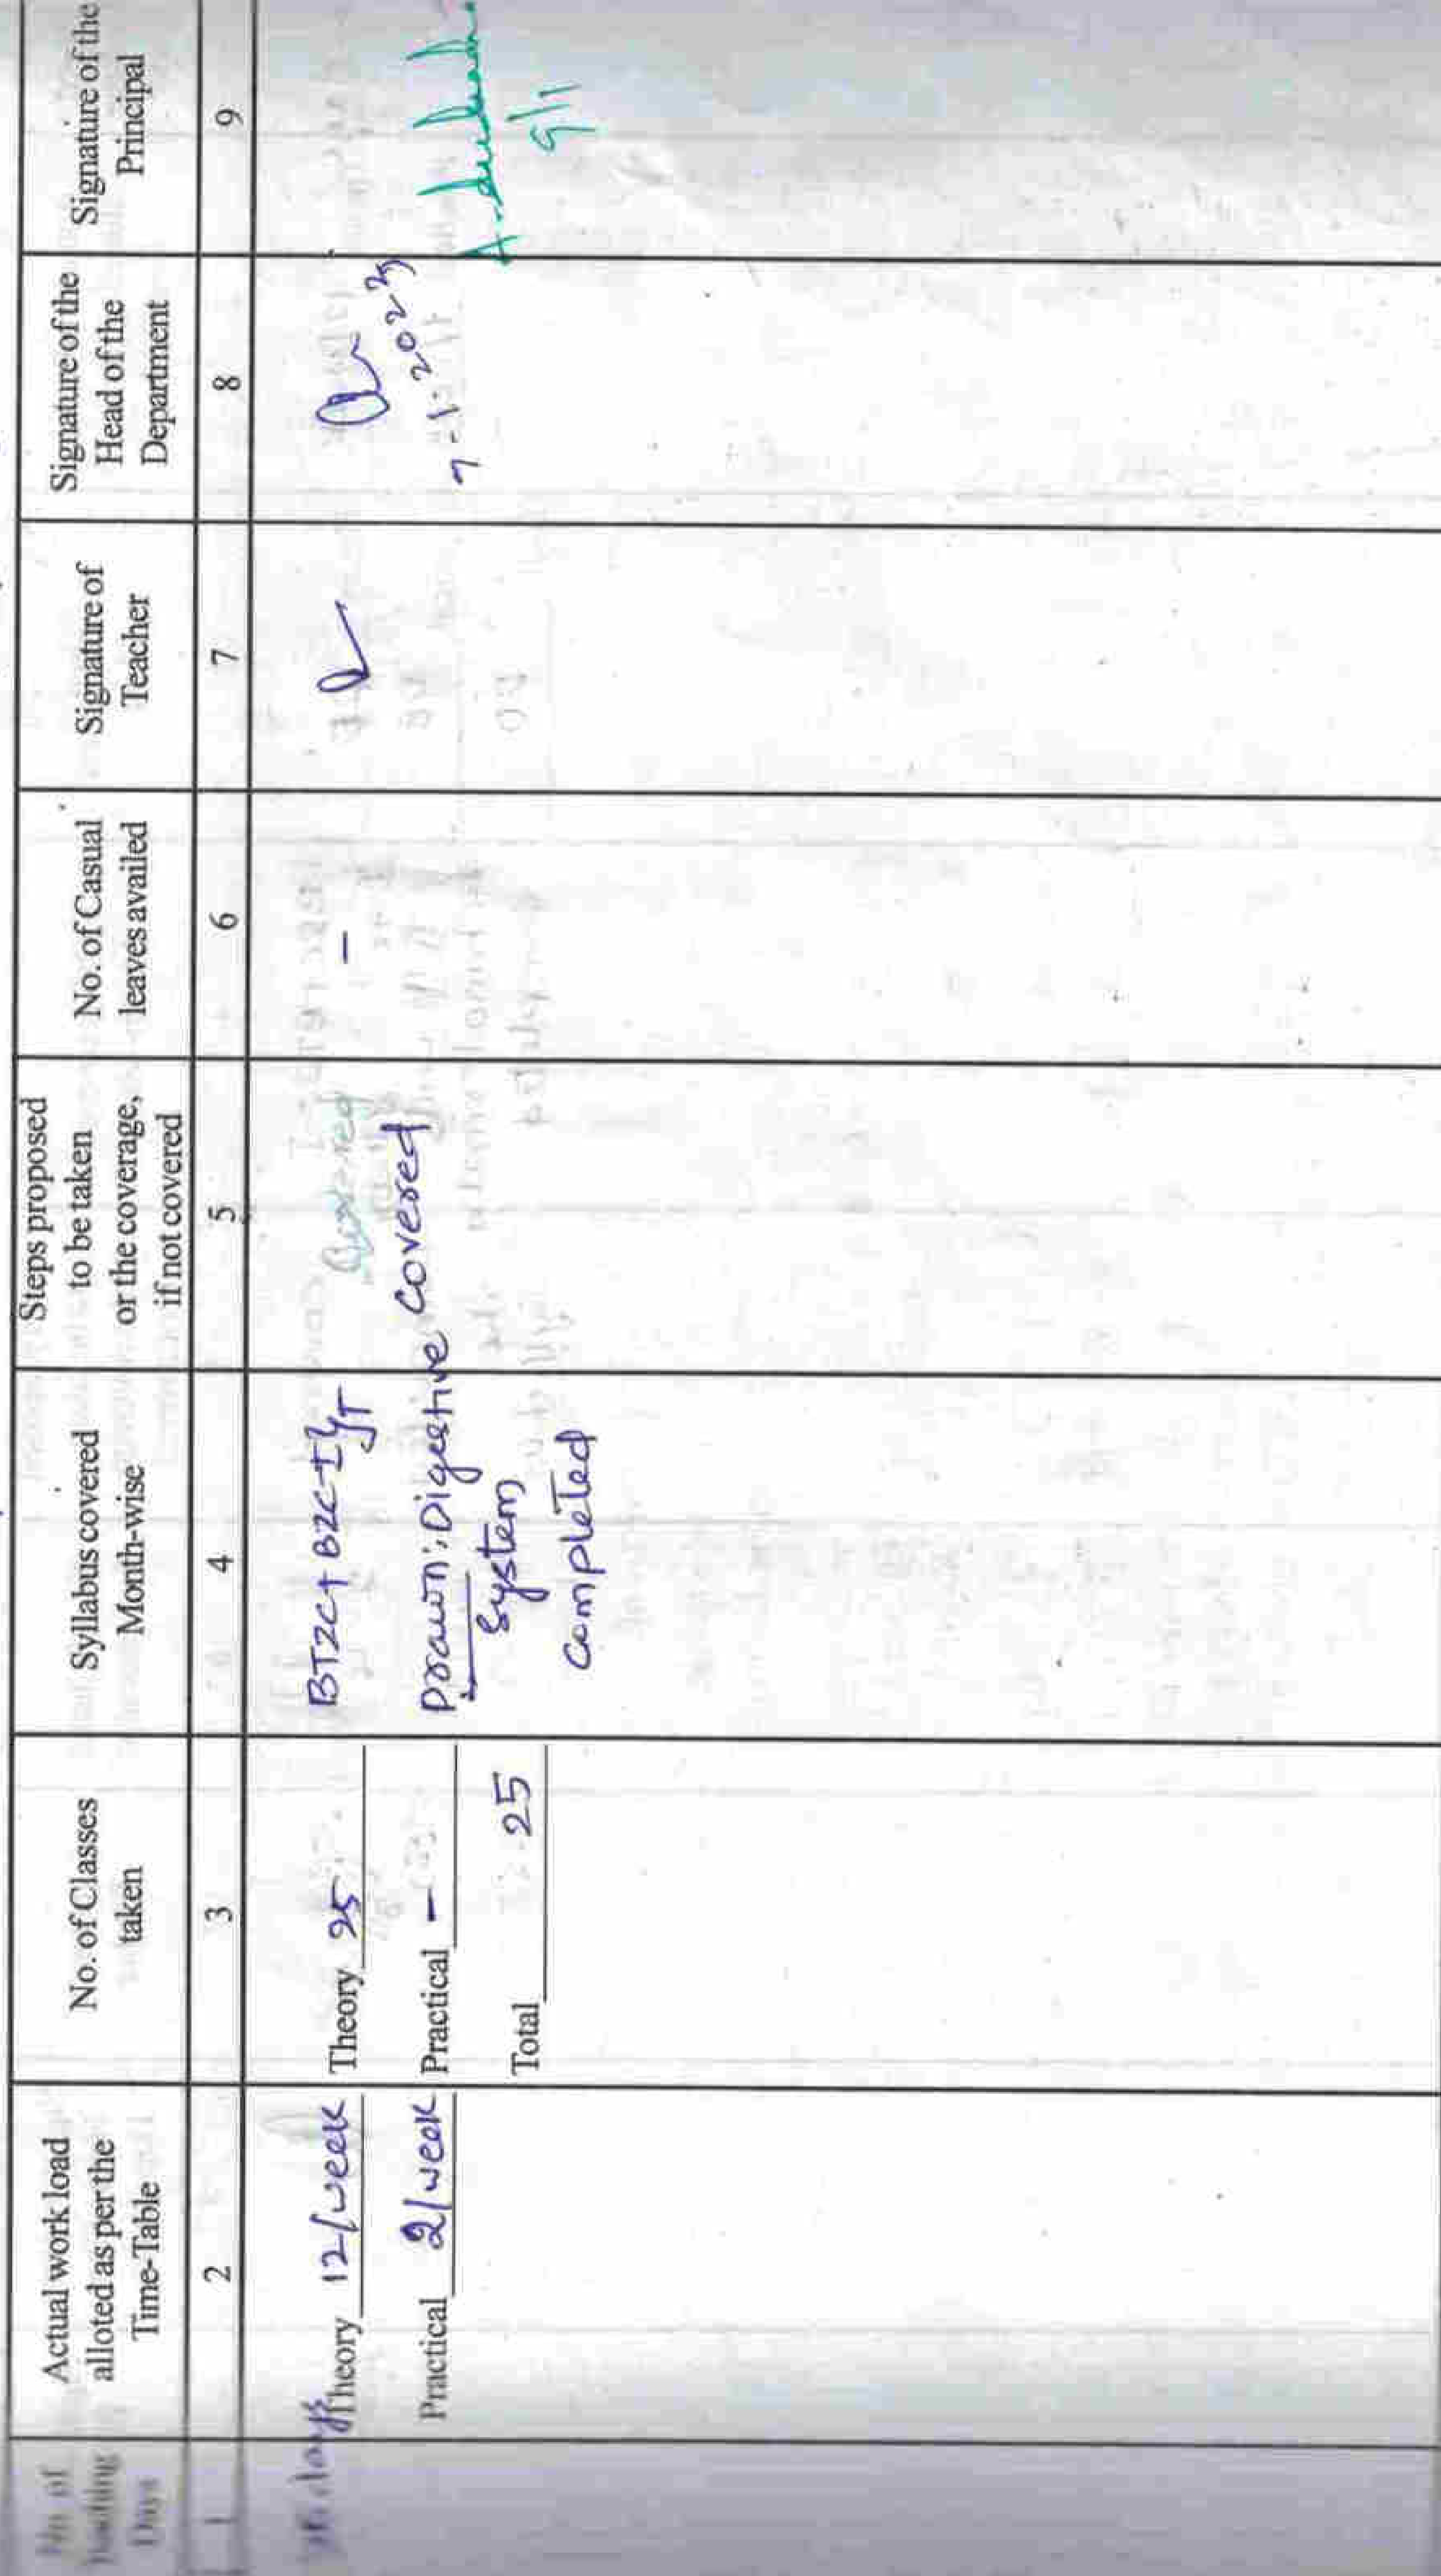 No. of
Teaching
Days
Actual work load
alloted as per the
Time-Table
No. of Classes
taken
Syllabus covered
Month-wise
Steps proposed
to be taken
or the coverage,
if not covered
No. of Casual
leaves availed
Signature of
Teacher
Signature of the
Head of the
Department
Signature of the
Principal
1 2 3 4 5 6 7 8 9
days
Theory 12/week
Practical 2/week
Theory 25
Practical -
Total 25
BTZC+BZC-I yr
Prawn: Digestive
System
Completed
Covered
covered
-
7-1-2023
9/1